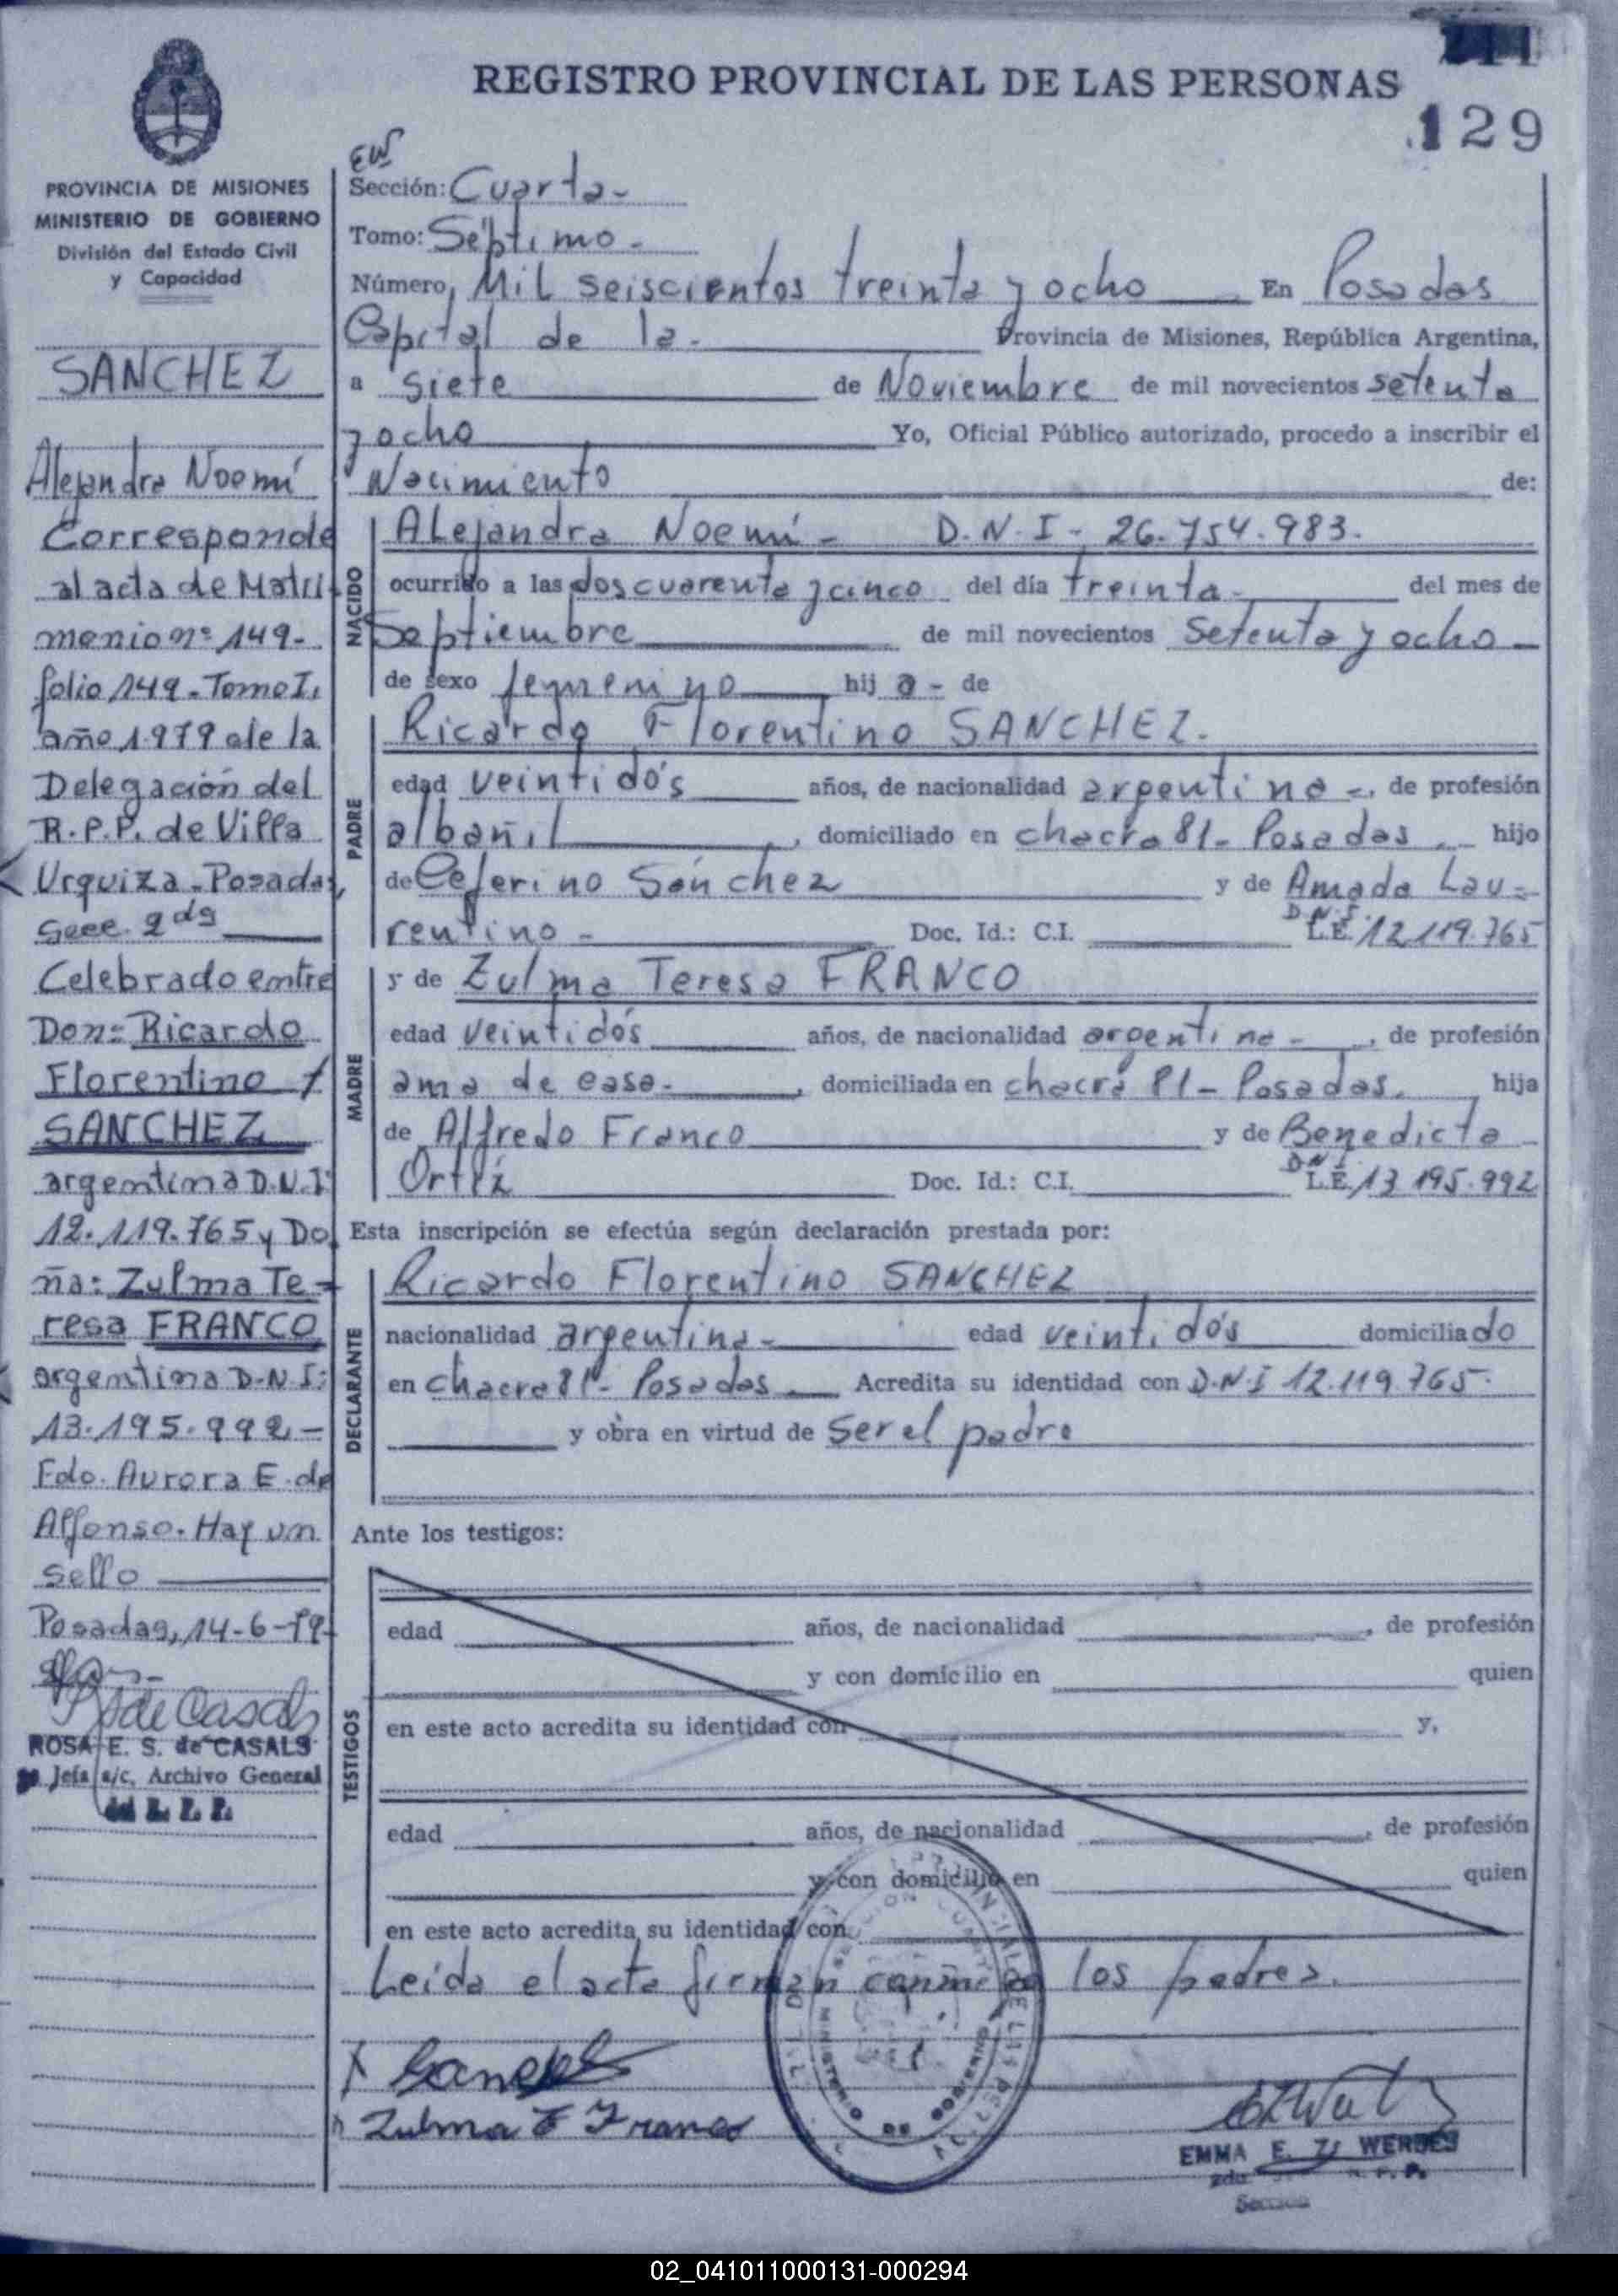 REGISTRO PROVINCIAL DE LAS PERSONAS
129
PROVINCIA DE MISIONES
MINISTERIO DE GOBIERNO
División del Estado Civil
y Capacidad
SANCHEZ
Alejandra Noemí
Corresponde
al acta de Matri
monio nº 149-
folio 149-Tomo I,
año 1979 de la
Delegación del
R.P.P. de Villa
Urquiza-Posadas,
Secc. 2da
Celebrado entre
Don: Ricardo
Florentino
SANCHEZ
argentina D.N.I:
12.119.765 y Do
ña: Zulma Te-
resa FRANCO
argentina D-N-I:
13.195.992-
Fdo. Aurora E. de
Alfonso. Hay un
sello
Posadas, 14-6-79-
ROSA E. S. de CASALS
Jefa a/c, Archivo General
Sección: Cuarta-
Tomo: Séptimo-
Número, Mil seiscientos treinta y ocho En Posadas
Capital de la- Provincia de Misiones, República Argentina,
a siete de Noviembre de mil novecientos setenta
y ocho Yo, Oficial Público autorizado, procedo a inscribir el
Nacimiento de:
NACIDO
Alejandra Noemí- D.N.I- 26.754.983.
ocurrido a las dos cuarenta y cinco del día treinta- del mes de
Septiembre de mil novecientos setenta y ocho-
de sexo femenino hij a- de
PADRE
Ricardo Florentino SANCHEZ.
edad veintidós años, de nacionalidad argentina-, de profesión
albañil, domiciliado en chacra 81- Posadas hijo
de Ceferino Sánchez y de Amada Lau-
rentino- Doc. Id.: C.I. D.N.I. L.E. 12.119.765
MADRE
y de Zulma Teresa FRANCO
edad veintidós años, de nacionalidad argentina-, de profesión
ama de casa-, domiciliada en chacra 81- Posadas. hija
de Alfredo Franco y de Benedicta
Ortíz Doc. Id.: C.I. D.N.I. L.E. 13.195.992
Esta inscripción se efectúa según declaración prestada por:
DECLARANTE
Ricardo Florentino SANCHEZ
nacionalidad argentina- edad veintidós domiciliado
en chacra 81- Posadas Acredita su identidad con D.N.I 12.119.765.
y obra en virtud de ser el padre
Ante los testigos:
TESTIGOS
edad años, de nacionalidad , de profesión
y con domicilio en quien
en este acto acredita su identidad con y,
edad años, de nacionalidad , de profesión
y con domicilio en quien
en este acto acredita su identidad con
Leída el acta firman conmigo los padres.
Zulma T Franco
MINISTERIO DE GOBIERNO
EMMA E. WERDES
Sección
02_041011000131-000294